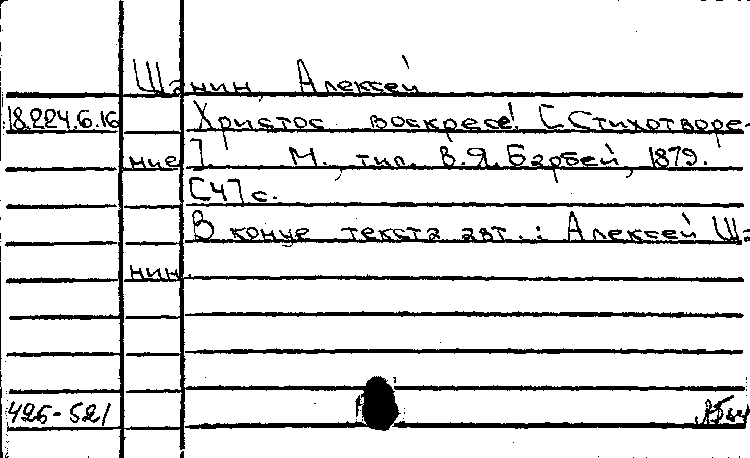 Шанин, Алексей
18.224.6.16 Христос воскресе! [Стихотворе-
ние]. М., тип. В.Я. Барбей, 1879.
[4] с.
В конце текста авт.: Алексей Ша
нин.
425-521